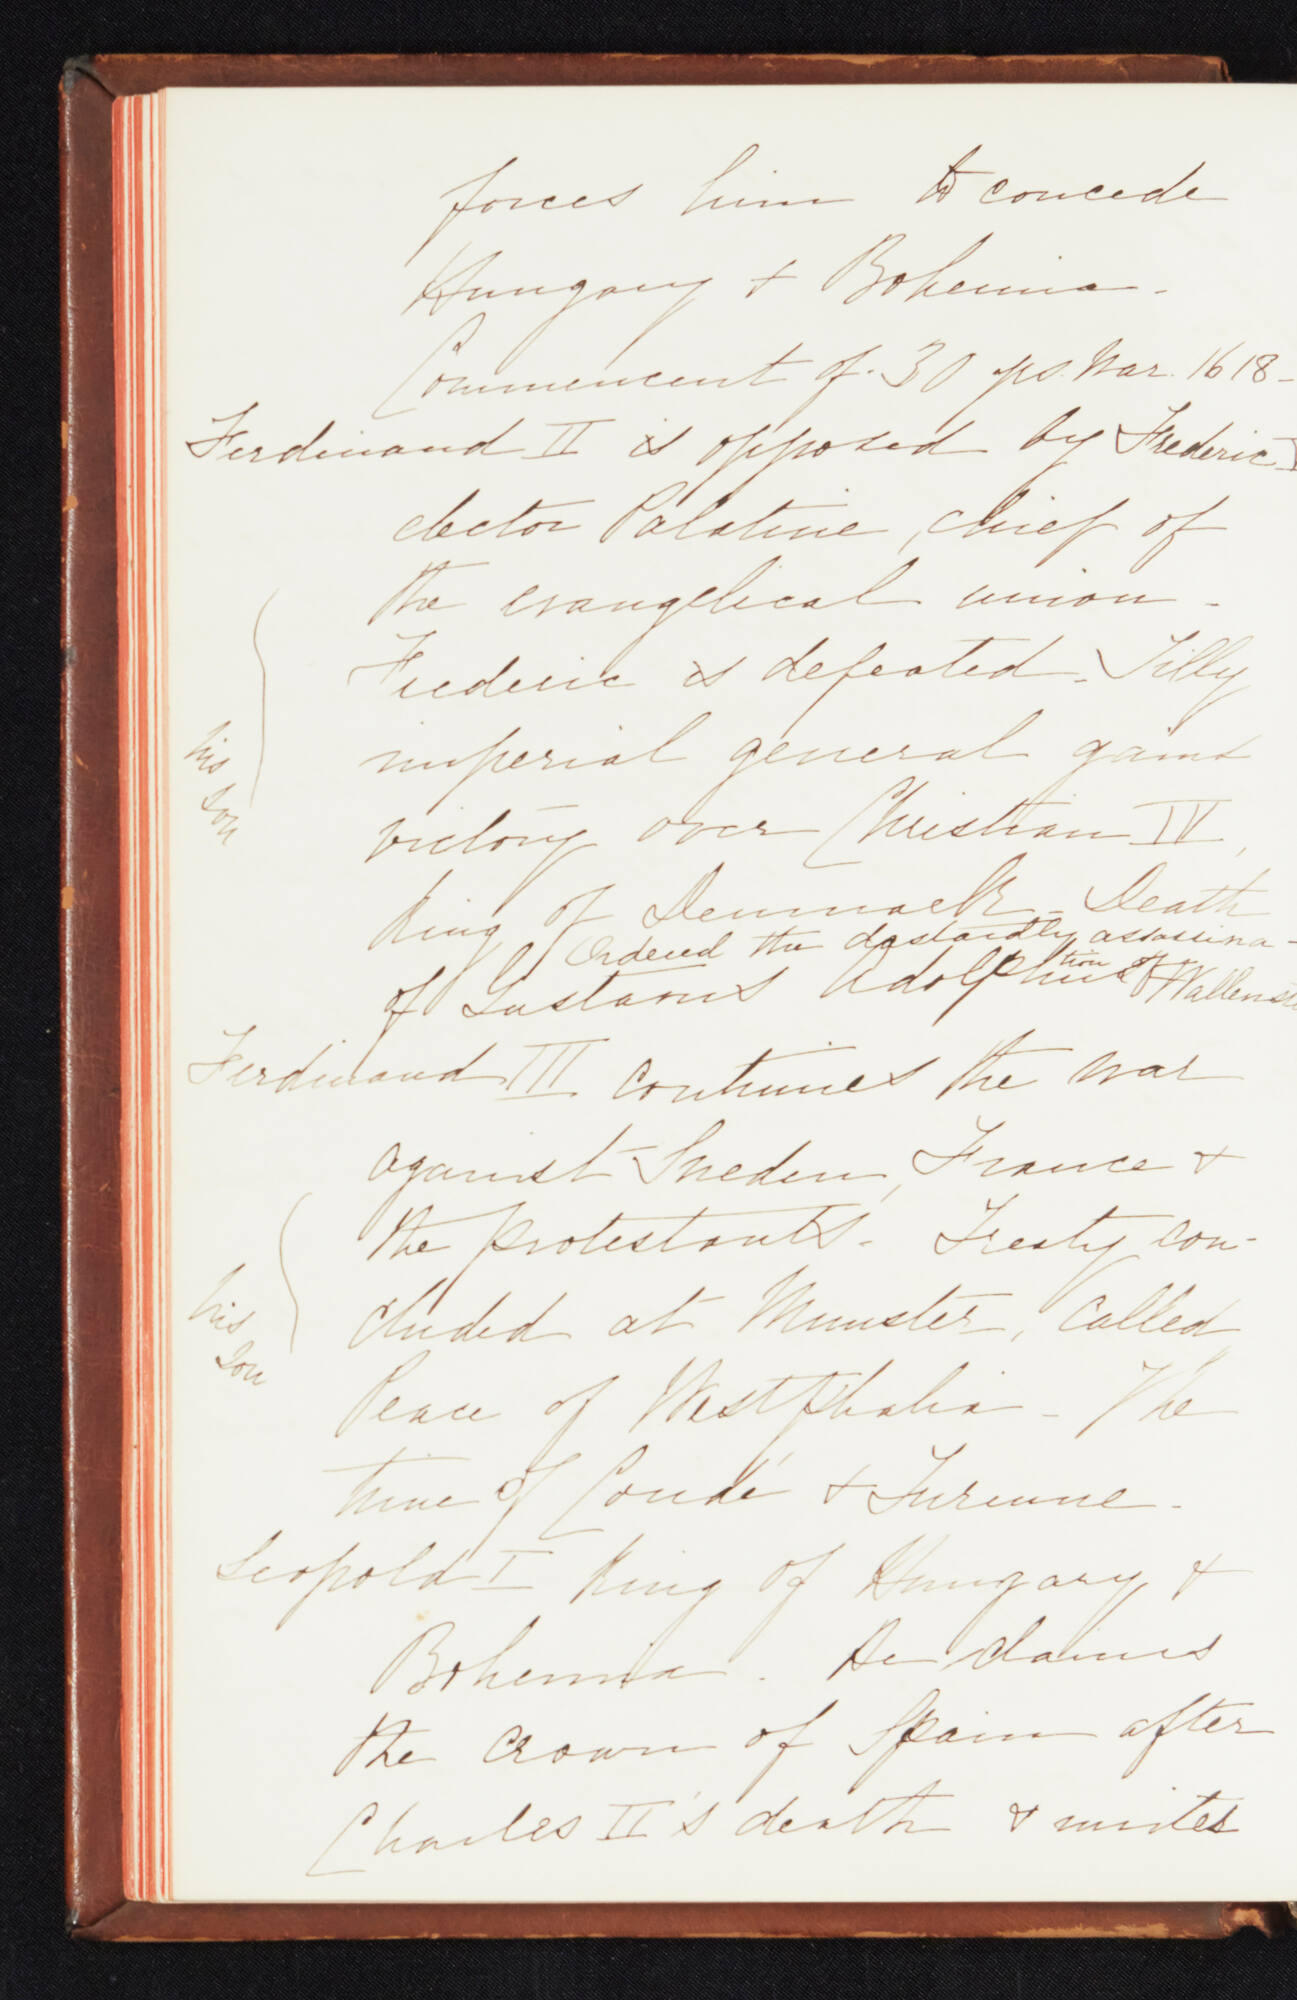 forces him to concede
Hungary + Bohemia -
Commencent of 30 yrs. War. 1618-
Ferdinand II is opposed by Frederic V
elector Palatine, chief of
the evangelical union -
Frederic is defeated - Tilly
imperial general gains
his
son
victory over Christian IV,
King of Denmark - Death
Ordered the dastardly assassina-
tion of Wallenste
of Gustavus Adolphus
Ferdinand III continues the war
against Sweden, France +
the protestants - Treaty con-
cluded at Munster, called
his
son
Peace of Westphalia - The
time of Condé + Turenne -
Leopold I King of Hungary +
Bohemia. He claims
the crown of Spain after
Charles II's death + unites